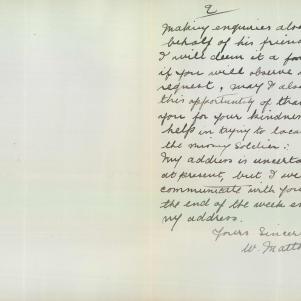 2
Making enquiries alon
behalf of his frien
I will deem it a fa
if you will observe
request, may I also
this opportunity of than
you for your kindness
help in trying to loca
the missing Soldier.:
My address is uncerta
at present, but I w
communicate with you
the end of the week
my address.
Yours Sincer
W. Matth